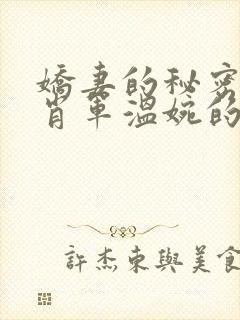 嬌妻的秘密
肖軍溫婉的
許杰東與美食